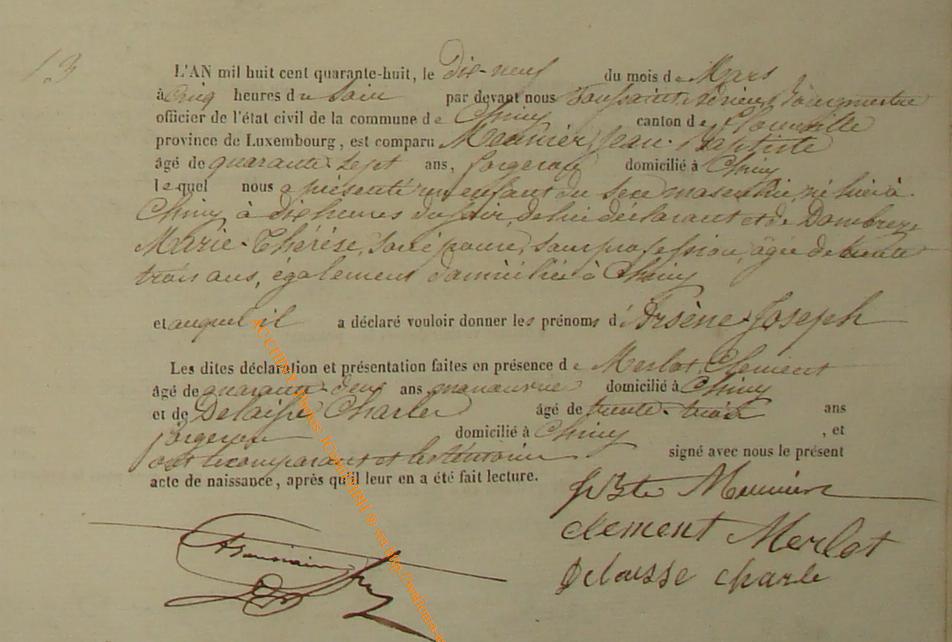 13
L'AN mil huit cent quarante-huit, le dix-neuf du mois de Mars
à cinq heures du soir par devant nous Toussaint
officier de l'état civil de la commune de Chiny canton de Florenville
province de Luxembourg, est comparu Meunier, Jean-Baptiste
âgé de quarante sept ans, forgeron domicilié à Chiny
lequel nous a présenté un enfant du sexe masculin, né hier à
Chiny, à dix heures du soir, de lui déclarant et de Dombrez,
Marie-Thérèse, son épouse, sans profession, âgée de trente
trois ans, également domiciliée à Chiny
et auquel il a déclaré vouloir donner les prénoms d'Arsène-Joseph
Les dites déclaration et présentation faites en présence de Merlot, Clement
âgé de quarante-deux ans manœuvre domicilié à Chiny
et de Delaisse Charles âgé de trente-trois ans
forgeron domicilié à Chiny, et
ont le comparant et les témoins signé avec nous le présent
acte de naissance, après qu'il leur en a été fait lecture.
Meunier
clement Merlot
Delousse charle